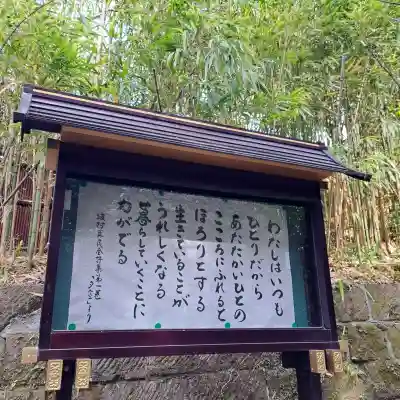 わたしはいつも
ひとりだから
あたたかいひとの
こころにふれると
ほろりとする
生きていることが
うれしくなる
暮らしていくことに
ねがでる
坂村真民全詩集第一巻